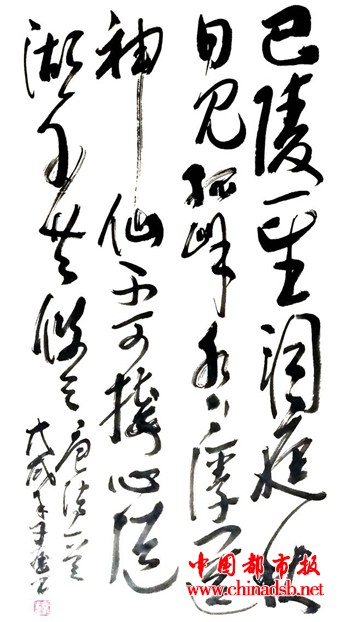 巴陵一望洞庭秋
日见孤峰水上浮闻道
神仙不可接心随
湖水共悠悠 唐诗一首
戊戌年
中国都市报
www.chinadsb.net